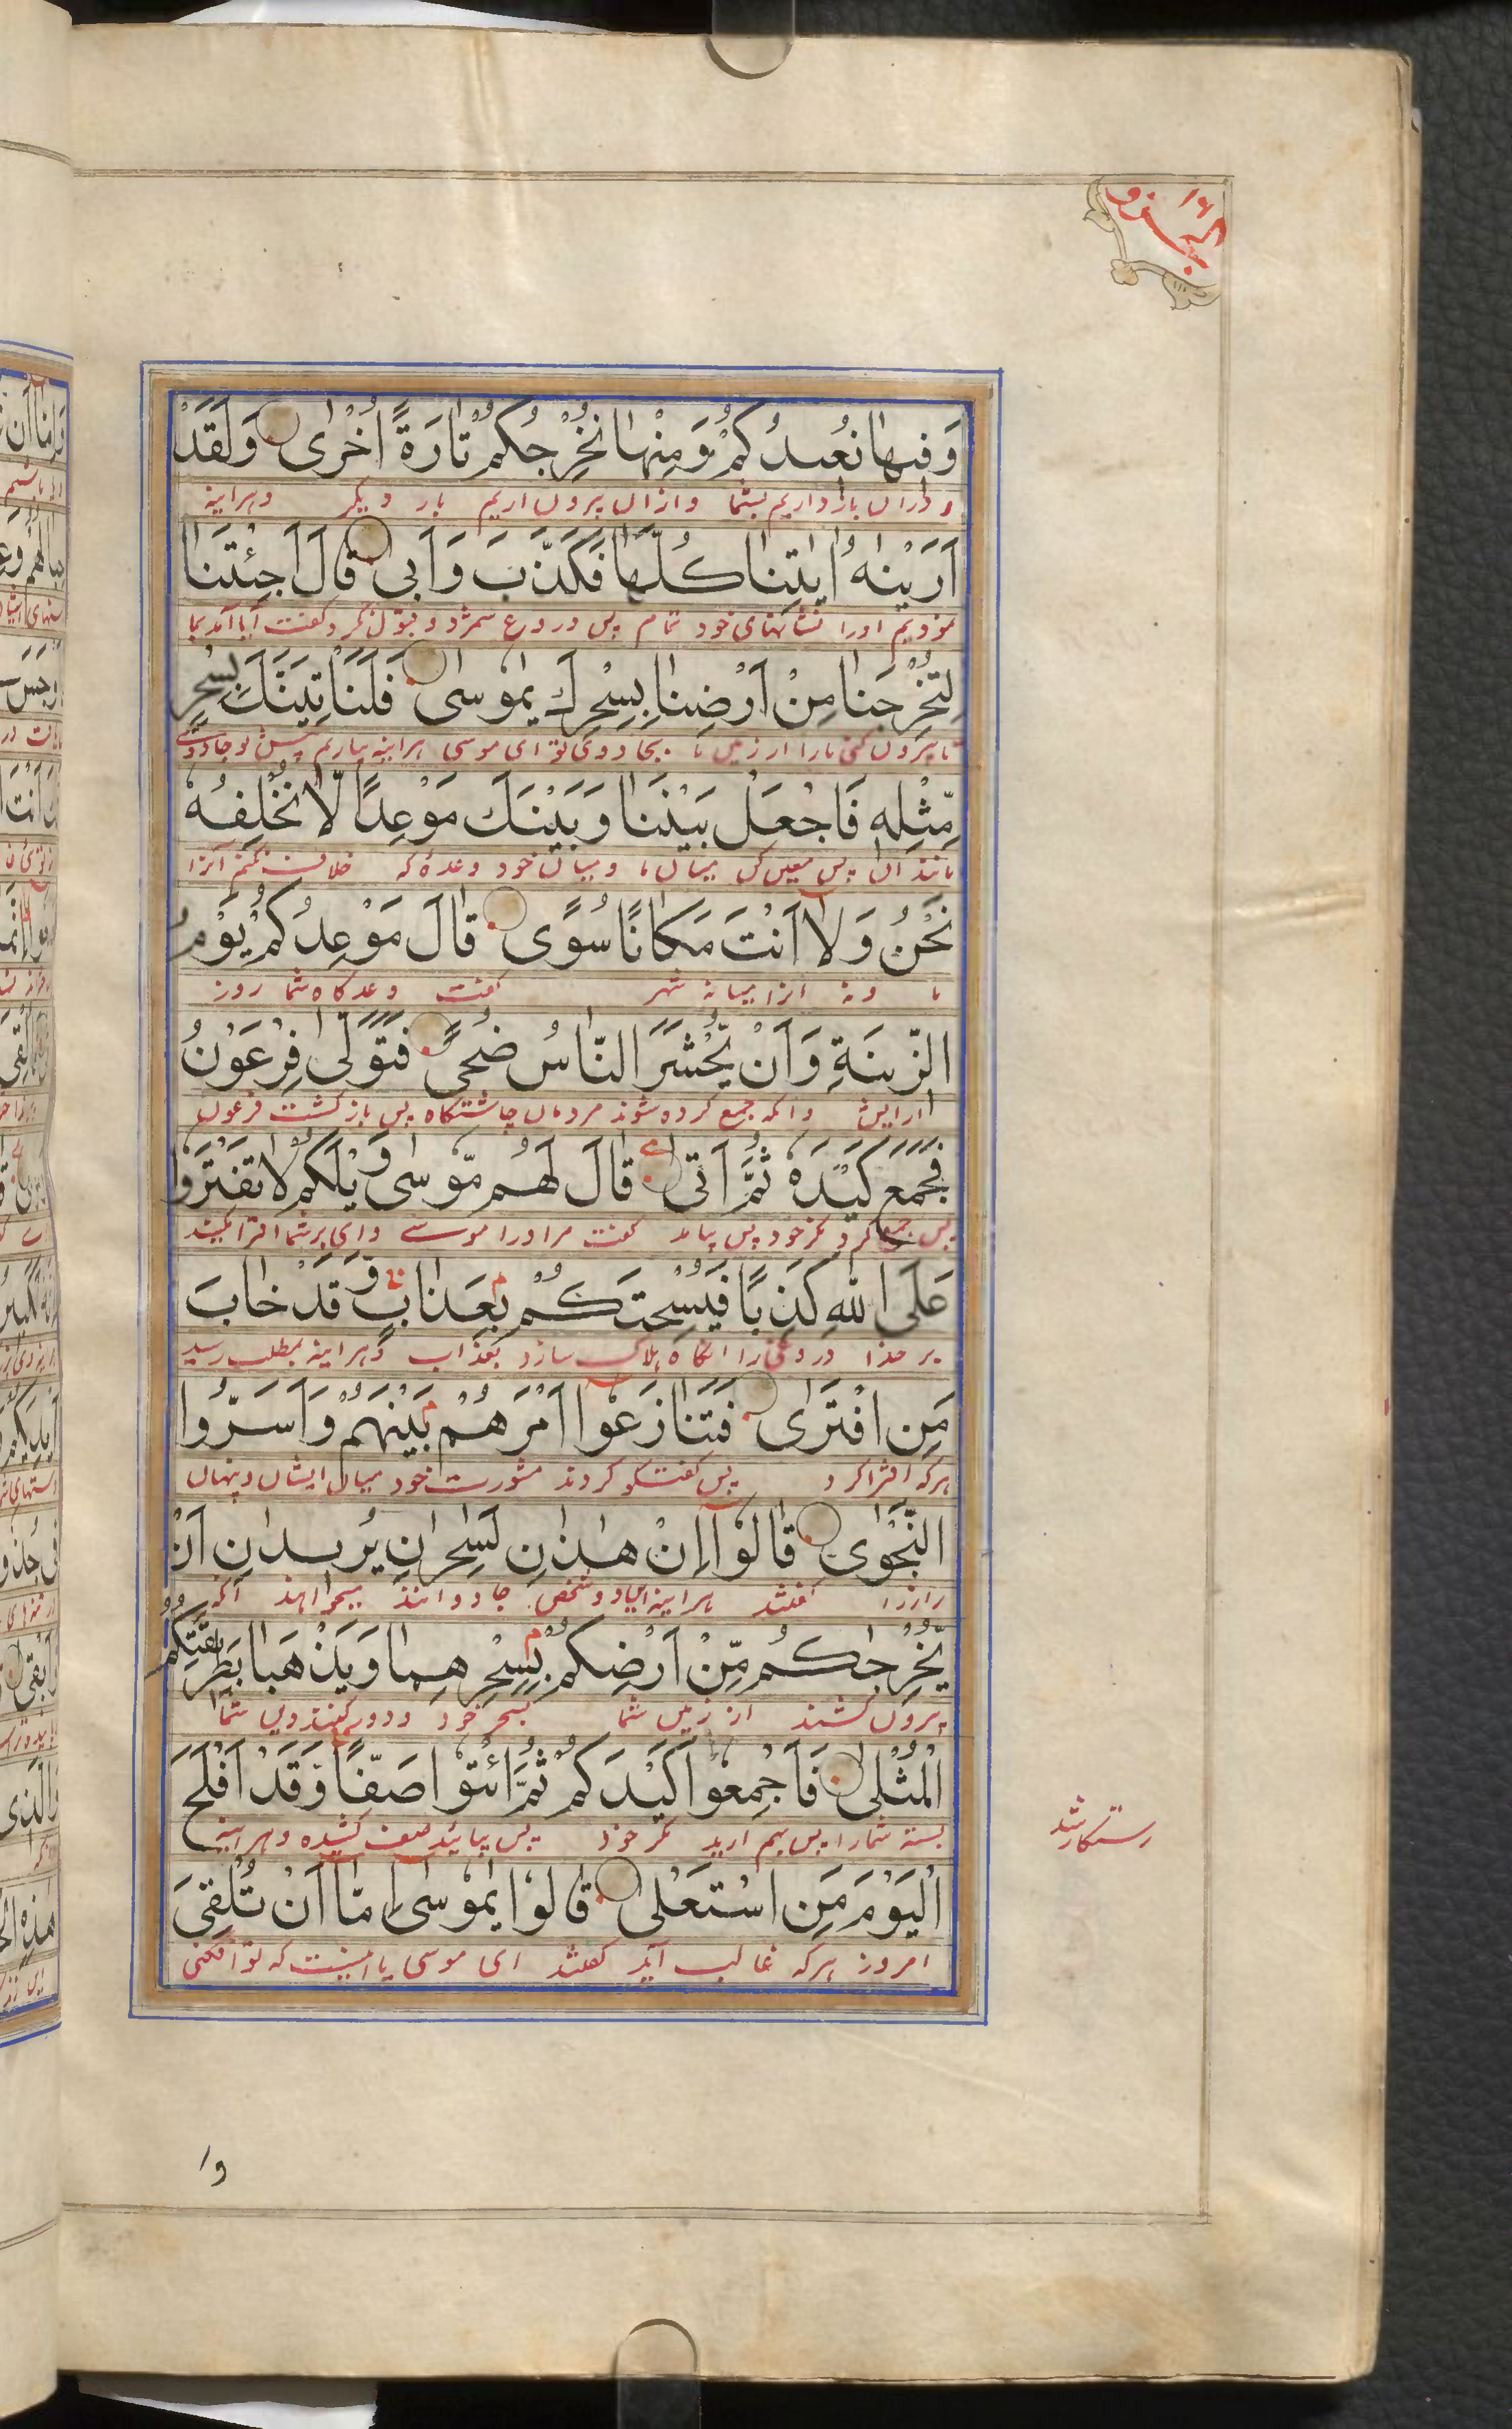 الجزو ١٦
وَفِيهَا نُعِيدُكُمْ وَمِنْهَا نُخْرِجُكُمْ تَارَةً أُخْرٰى وَلَقَدْ
و دران باز داریم بشما و ازان بیرون اریم بار دیگر و هراینه
اَرَيْنٰهُ اٰيٰتِنَا كُلَّهَا فَكَذَّبَ وَاَبٰى قَالَ اَجِئْتَنَا
نمودیم اورا نشانهای خود تمام پس دروغ شمرد و قبول نکرد کفت آیا آمدی بما
لِتُخْرِجَنَا مِنْ اَرْضِنَا بِسِحْرِكَ يٰمُوسٰى فَلَنَاْتِيَنَّكَ بِسِحْرٍ
تا بیرون کنی مارا از زمین ما بجادوی تو ای موسی هراینه بیاریم پیش تو جادوئے
مِّثْلِهٖ فَاجْعَلْ بَيْنَنَا وَبَيْنَكَ مَوْعِدًا لَّا نُخْلِفُهٗ
مانند ان پس معین کن میان ما و میان خود وعده که خلاف نکنیم انرا
نَحْنُ وَلَا اَنْتَ مَكَانًا سُوًى قَالَ مَوْعِدُكُمْ يَوْمُ
ما و نه انرا میانه شهر کفت وعدکاه شما روز
الزِّينَةِ وَاَنْ يُّحْشَرَ النَّاسُ ضُحًى فَتَوَلّٰى فِرْعَوْنُ
ارایش و انکه جمع کرده شوند مردمان چاشتکاه پس باز کشت فرعون
فَجَمَعَ كَيْدَهٗ ثُمَّ اَتٰى قَالَ لَهُمْ مُّوسٰى وَيْلَكُمْ لَا تَفْتَرُوا
پس جمع کرد مکر خود پس بیامد کفت مر اورا موسے وای بر شما افترا مکنید
عَلَى اللّٰهِ كَذِبًا فَيُسْحِتَكُمْ بِعَذَابٍ وَّقَدْ خَابَ
بر خدا دروغی را انکاه هلاک سازد بعذاب و هراینه بمطلب رسید
مَنِ افْتَرٰى فَتَنَازَعُوا اَمْرَهُمْ بَيْنَهُمْ وَاَسَرُّوا
هرکه افترا کرد پس کفتکو کردند مشورت خود میان ایشان و پنهان
النَّجْوٰى قَالُوْا اِنْ هٰذٰنِ لَسٰحِرٰنِ يُرِيدٰنِ اَنْ
راز را کفتند هراینه این دو شخص جادو انند میخواهند انکه
يُّخْرِجٰكُمْ مِّنْ اَرْضِكُمْ بِسِحْرِهِمَا وَيَذْهَبَا بِطَرِيقَتِكُمُ
بیرون کشند از زمین شما بسحر خود و دور کنند دین شما
الْمُثْلٰى فَاَجْمِعُوا كَيْدَكُمْ ثُمَّ ائْتُوا صَفًّا وَقَدْ اَفْلَحَ
بسته شمارا پس بهم ارید مکر خود پس بیائید صف کشیده و هراینه
رستکار شد
الْيَوْمَ مَنِ اسْتَعْلٰى قَالُوا يٰمُوسٰى اِمَّا اَنْ تُلْقِيَ
امروز هرکه غالب آید کفتند ای موسی یا اینست که تو افکنی
و ا